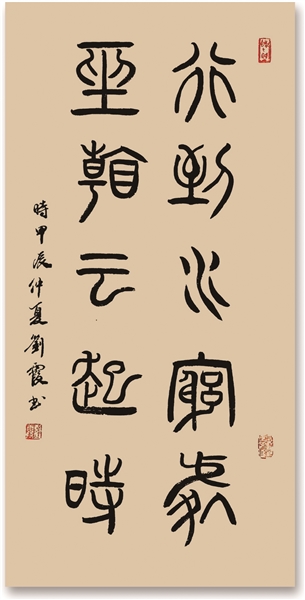 行到水窮處
坐看云起時
時甲辰仲夏劉霞书